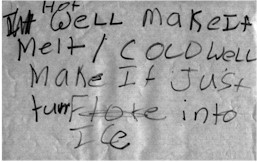 Hot
Well make It
Melt / COLD Well
Make It Just
turn into
ICe